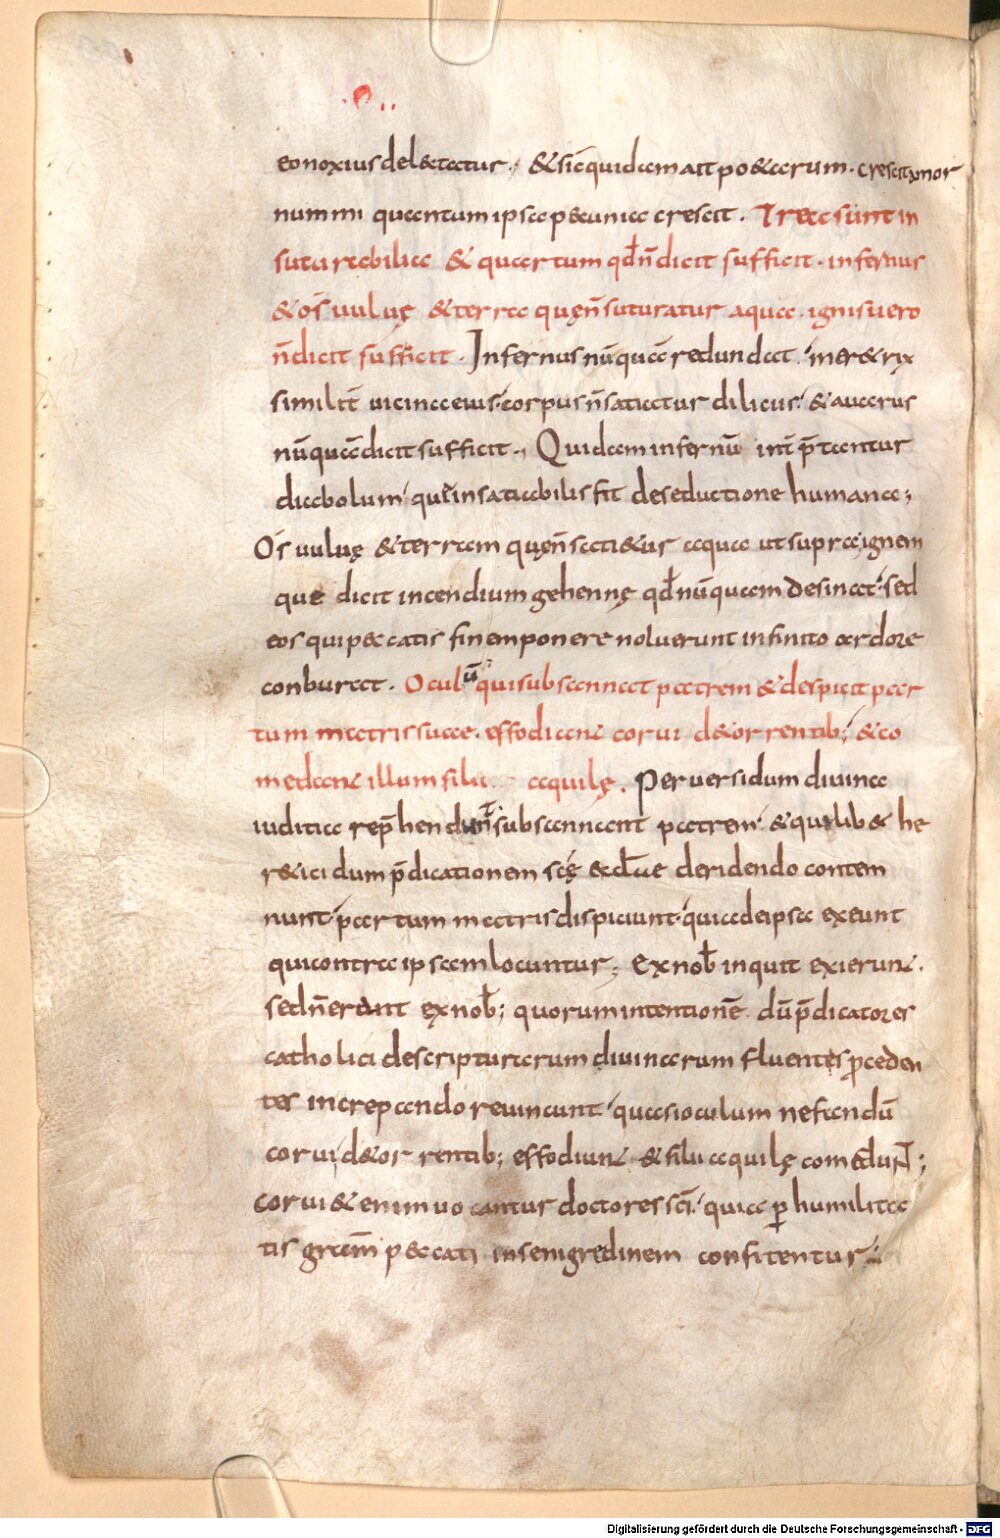 eo noxius delectatur. & sic quidam ait poetarum. crescit amor
nummi quantum ipsa pecunia crescit. Tria sunt in
saturabilia & quartum qđ n̄ dicit sufficit. infernus
& os uuluę & terra quę n̄ saturatur aqua. ignis uero
n̄ dicit sufficit. Infernus nūquā redundat. meretrix
similit̄ uicina eius corpus n̄ satiatur dilicus. & auarus
nūquā dicit sufficit. Quidam infernū int̄ p̄tantur
diabolum qui insatiabilis fit de seductione humana;
Os uuluę & terram quę n̄ sati&ur aqua ut supra ignem
que dicit incendium gehennę qđ nūquam desinat. sed
eos qui peccatis finem ponere noluerunt infinito ardore
conburat. Oculū qui subsannat patrem & despicit par
tum matris suae. effodiant corui de torrentib; & co
medant illum filii aquilę. Peruersi dum diuina
iuditia rep̄hendunt subsannant patrem & quilib& he
r&ici dum p̄dicationem scę ęcclae deridendo contem
nunt. partum matris dispiciunt. quia de ipsa exeunt
qui contra ipsam locuntur; Ex nob̄ inquit exierunt.
sed n̄ erant ex nob̄; quorum intentionē dū p̄dicatores
catholici de scripturarum diuinarum fluentes p̄ceden
tes increpando reuincunt quasi oculum nefandū
corui de torrentib; effodiunt & filii aquilę comedunt;
Corui & enim uocantur doctores sci. quia p̄ humilita
tis gratiā peccati in se nigredinem confitentur.
Digitalisierung gefördert durch die Deutsche Forschungsgemeinschaft - DFG